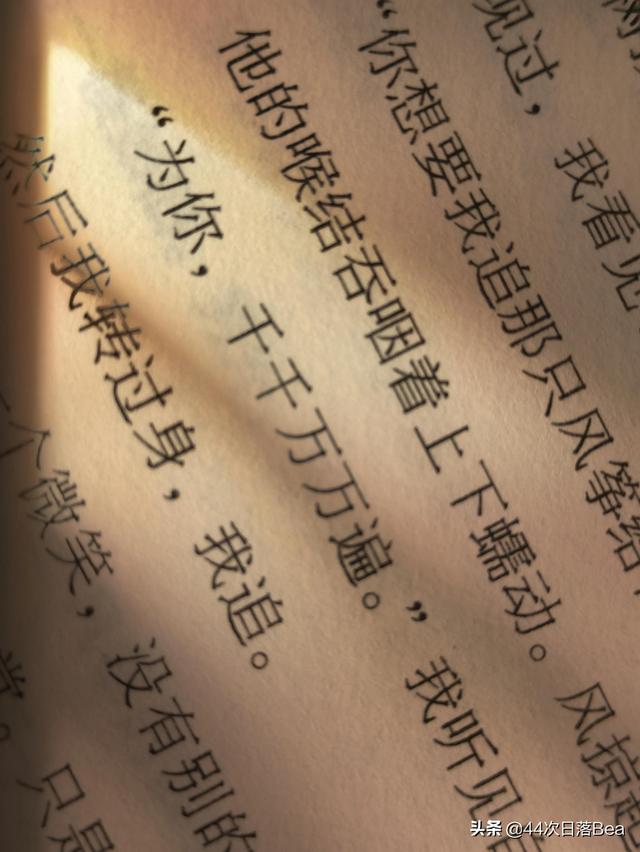 过,我看见
“你想要我追那只风筝给
他的喉结吞咽着上下蠕动。风掠起
“为你,千千万万遍。”我听见
然后我转过身,我追。
一个微笑,没有别的
常。只是
头条 @44次日落Bea